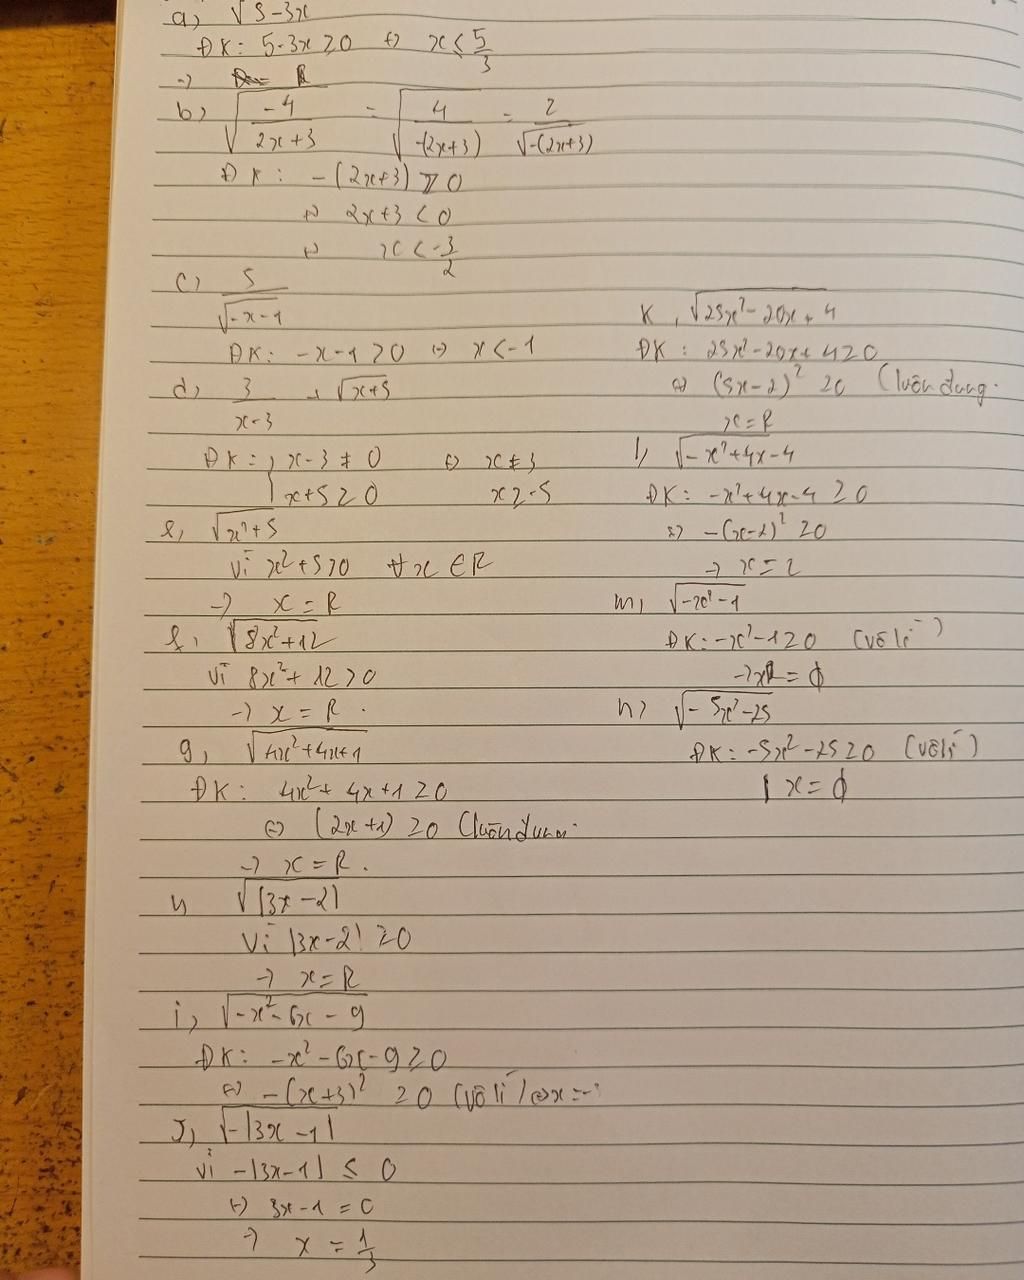 a) √5-3x
ĐK: 5-3x ≥ 0 ⇔ x ≤ 5/3
→ R
b) √(-4/(2x+3)) = √(4/(-(2x+3))) = 2/√(-(2x+3))
ĐK: -(2x+3) > 0
⇔ 2x+3 < 0
⇔ x < -3/2
c) 5/√(-x-1)
ĐK: -x-1 > 0 ⇔ x < -1
d) 3/(x-3) + √(x+5)
ĐK: { x-3 ≠ 0 ⇔ x ≠ 3
x+5 ≥ 0 x ≥ -5
e, √(x²+5)
Vì x²+5 > 0 ∀x ∈ R
→ x = R
f, √(8x²+12)
Vì 8x²+12 > 0
→ x = R.
g, √(4x²+4x+1)
ĐK: 4x²+4x+1 ≥ 0
⇔ (2x+1) ≥ 0 (luôn đúng.
→ x = R.
h √|3x-2|
Vì |3x-2| ≥ 0
→ x = R
i, √(-x²-6x-9)
ĐK: -x²-6x-9 ≥ 0
⇔ -(x+3)² ≥ 0 (vô lí) ⇔ x = -
J, √(-|3x-1|)
Vì -|3x-1| ≤ 0
⇔ 3x-1 = 0
→ x = 1/3
K, √(25x²-20x+4)
ĐK: 25x²-20x+4 ≥ 0
⇔ (5x-2)² ≥ 0 (luôn đúng.
x = R
l, √(-x²+4x-4)
ĐK: -x²+4x-4 ≥ 0
⇔ -(x-2)² ≥ 0
→ x = 2
m, √(-x²-1)
ĐK: -x²-1 ≥ 0 (vô lí)
→ x = ϕ
n, √(-5x²-25)
ĐK: -5x²-25 ≥ 0 (vô lí)
x = ϕ